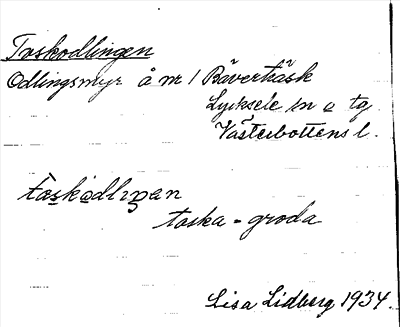 Taskodlingen
Odlingsmyr å nr 1 Bäverträsk
Lycksele sn o tg
Västerbottens l.
taskodlingen
taska = groda
Lisa Lidberg 1934.